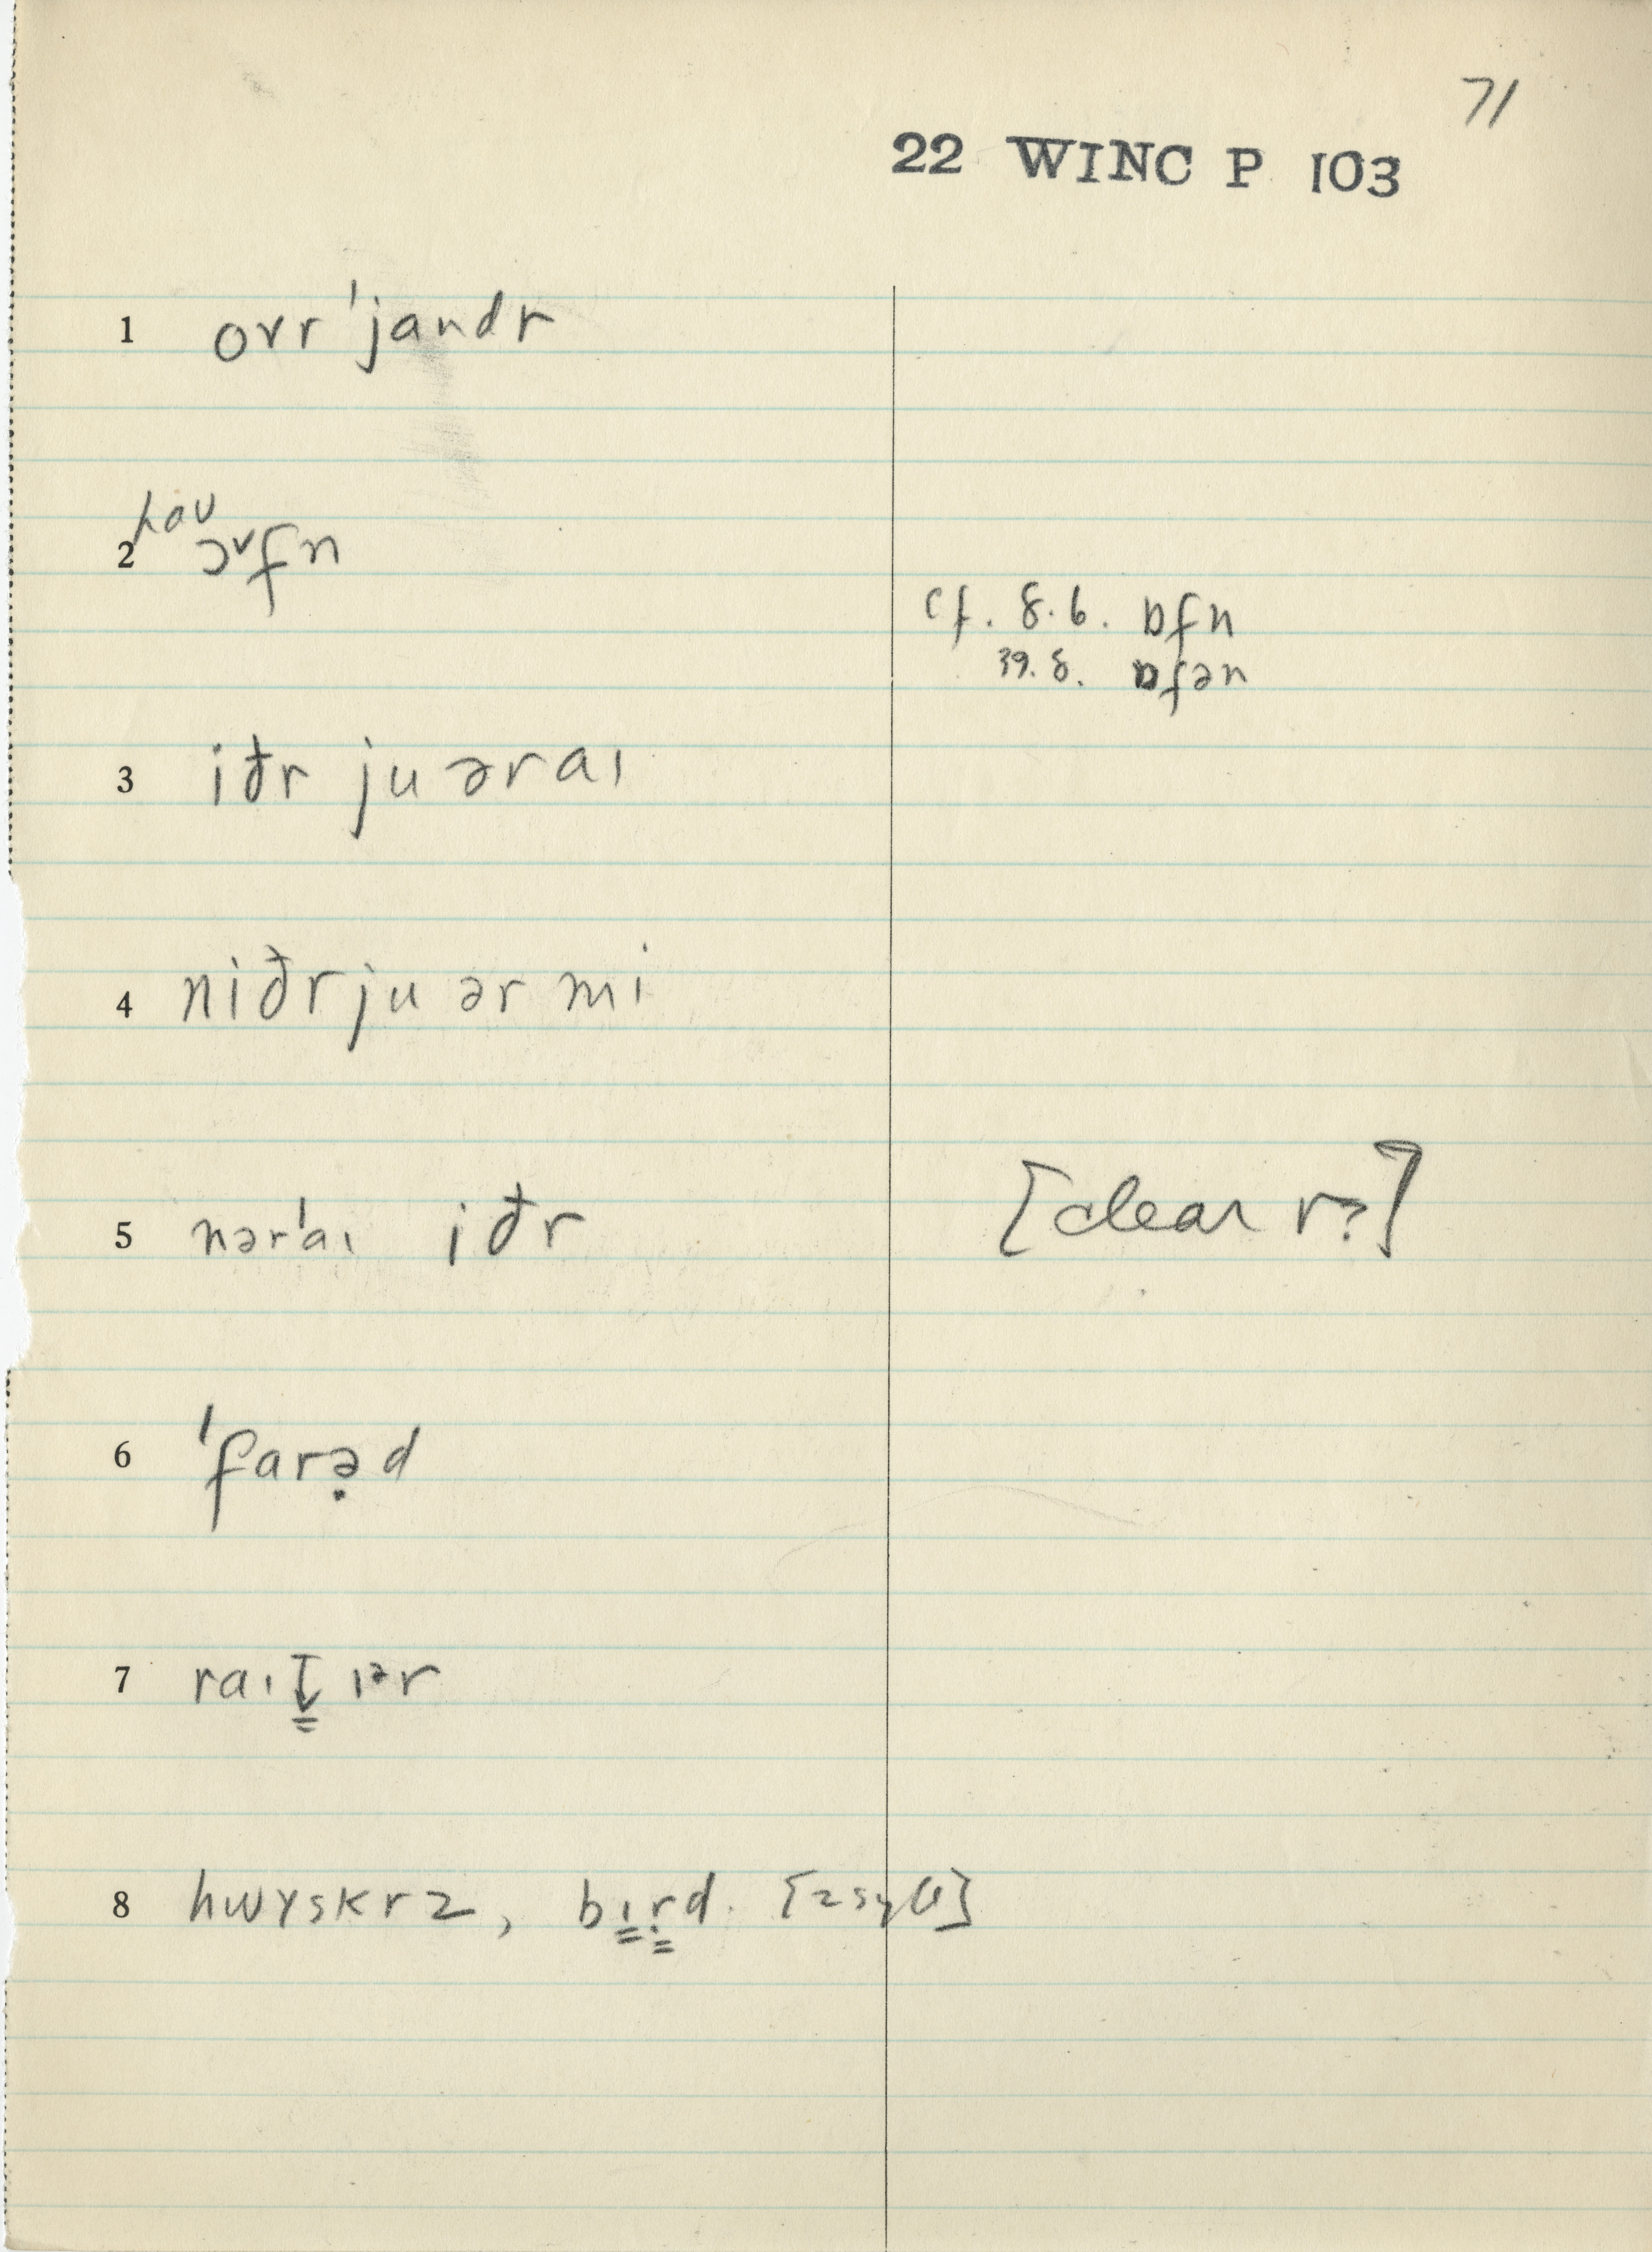 71
22 WINC P 103
1 ovr ˈjandr
hau
2 ɔᵛfn
cf. 8.6. ɒfn
39.8. ɒfən
3 iðr ju əraɪ
4 niðr ju ər mi
5 nərˈaɪ iðr [clear r?]
6 ˈfarə̣d
7 raɪt̬̳ ɪᵊr
8 hwɤskrz, bɪ̳ṛ̳d. [2 syll]